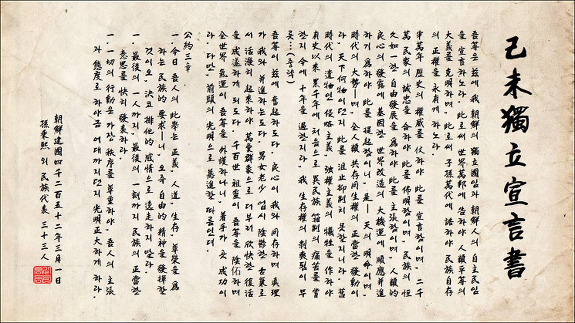 己未獨立宣言書
吾等은 玆에 我 朝鮮의 獨立國임과 朝鮮人의 自主民임
을 宣言하노라. 此로써 世界萬邦에 告하야 人類平等의
大義를 克明하며, 此로써 子孫萬代에 誥하야 民族自存
의 正權을 永有케 하노라.
半萬年 歷史의 權威를 仗하야 此를 宣言함이며, 二千
萬 民衆의 誠忠을 合하야 此를 佈明함이며, 民族의 恒
久如一한 自由發展을 爲하야 此를 主張함이며, 人類的
良心의 發露에 基因한 世界改造의 大機運에 順應幷進
하기 爲하야 此를 提起함이니, 是ㅣ 天의 明命이며
時代의 大勢이며, 全人類 共存同生權의 正當한 發動이
라, 天下何物이던지 此를 沮止抑制치 못할지니라. 舊
時代의 遺物인 侵略主義, 强權主義의 犧牲을 作하야
有史以來 累千年에 처음으로 異民族 箝制의 痛苦를 嘗
한지 今에 十年을 過한지라. 我 生存權의 剝喪됨이 무
릇…(중략)
吾等이 玆에 奮起하도다. 良心이 我와 同存하며 眞理
가 我와 幷進하는도다. 男女老少 업시 陰鬱한 古巢로
서 活潑히 起來하야 萬彙群衆으로 더부러 欣快한 復活
을 成遂하게 되도다. 千百世 祖靈이 吾等을 陰佑하며
全世界 氣運이 吾等을 外護하나니, 着手가 곳 成功이
라. 다만, 前頭의 光明으로 驀進할 따름인뎌.
公約三章
一. 今日 吾人의 此擧는 正義, 人道, 生存, 尊榮을 爲
하는 民族的 要求ㅣ니 오즉 自由的 精神을 發揮할
것이오, 決코 排他的 感情으로 逸走하지 말라.
一. 最後의 一人까지, 最後의 一刻까지 民族의 正當한
意思를 快히 發表하라.
一. 一切의 行動은 가장 秩序를 尊重하야, 吾人의 主張
과 態度로 하야금 어대까지던지 光明正大하게 하라.
朝鮮建國四千二百五十二年三月一日
孫秉熙外 民族代表 三十三人